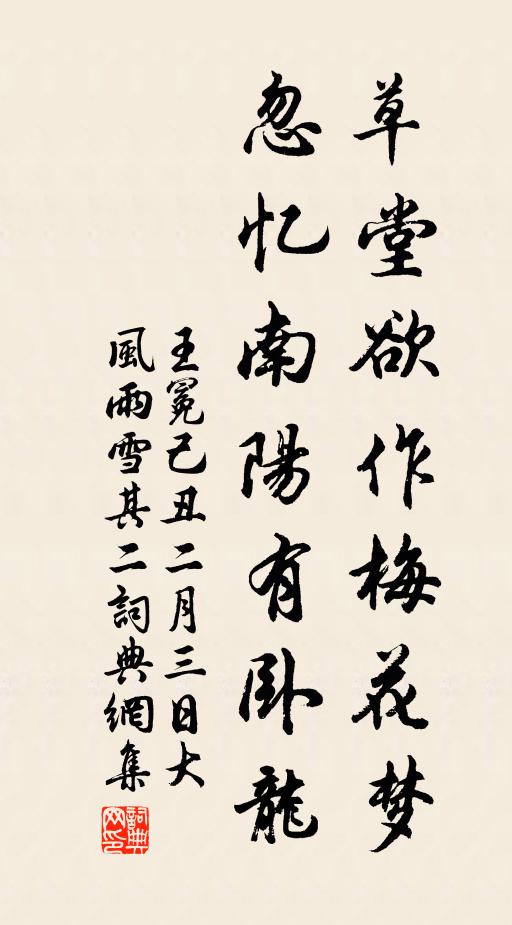 草堂欲作梅花梦
忽忆南陽有卧龍
王冕己丑二月三日大
風雨雪其二詞典網集
詞典網印